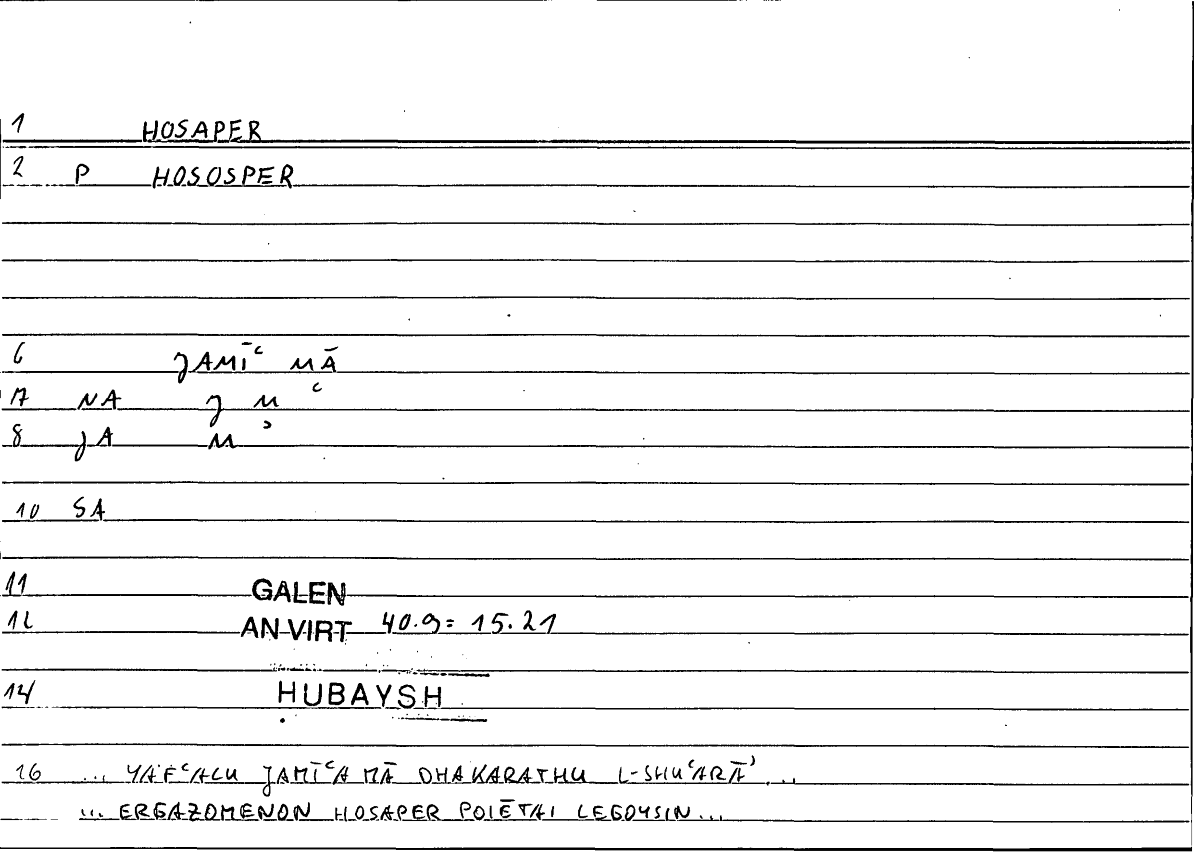 1 HOSAPER
2 P HOSOSPER
6 JAMĪʿ MĀ
17 NA J M ʿ
8 JA M ʾ
10 SA
11 GALEN
12 AN VIRT 40.9 = 15.21
14 HUBAYSH
16 ... YAFʿALU JAMĪʿA MĀ DHAKARATHU L-SHUʿARĀʾ ...
... ERGAZOMENON HOSAPER POIĒTAI LEGOYSIN ...